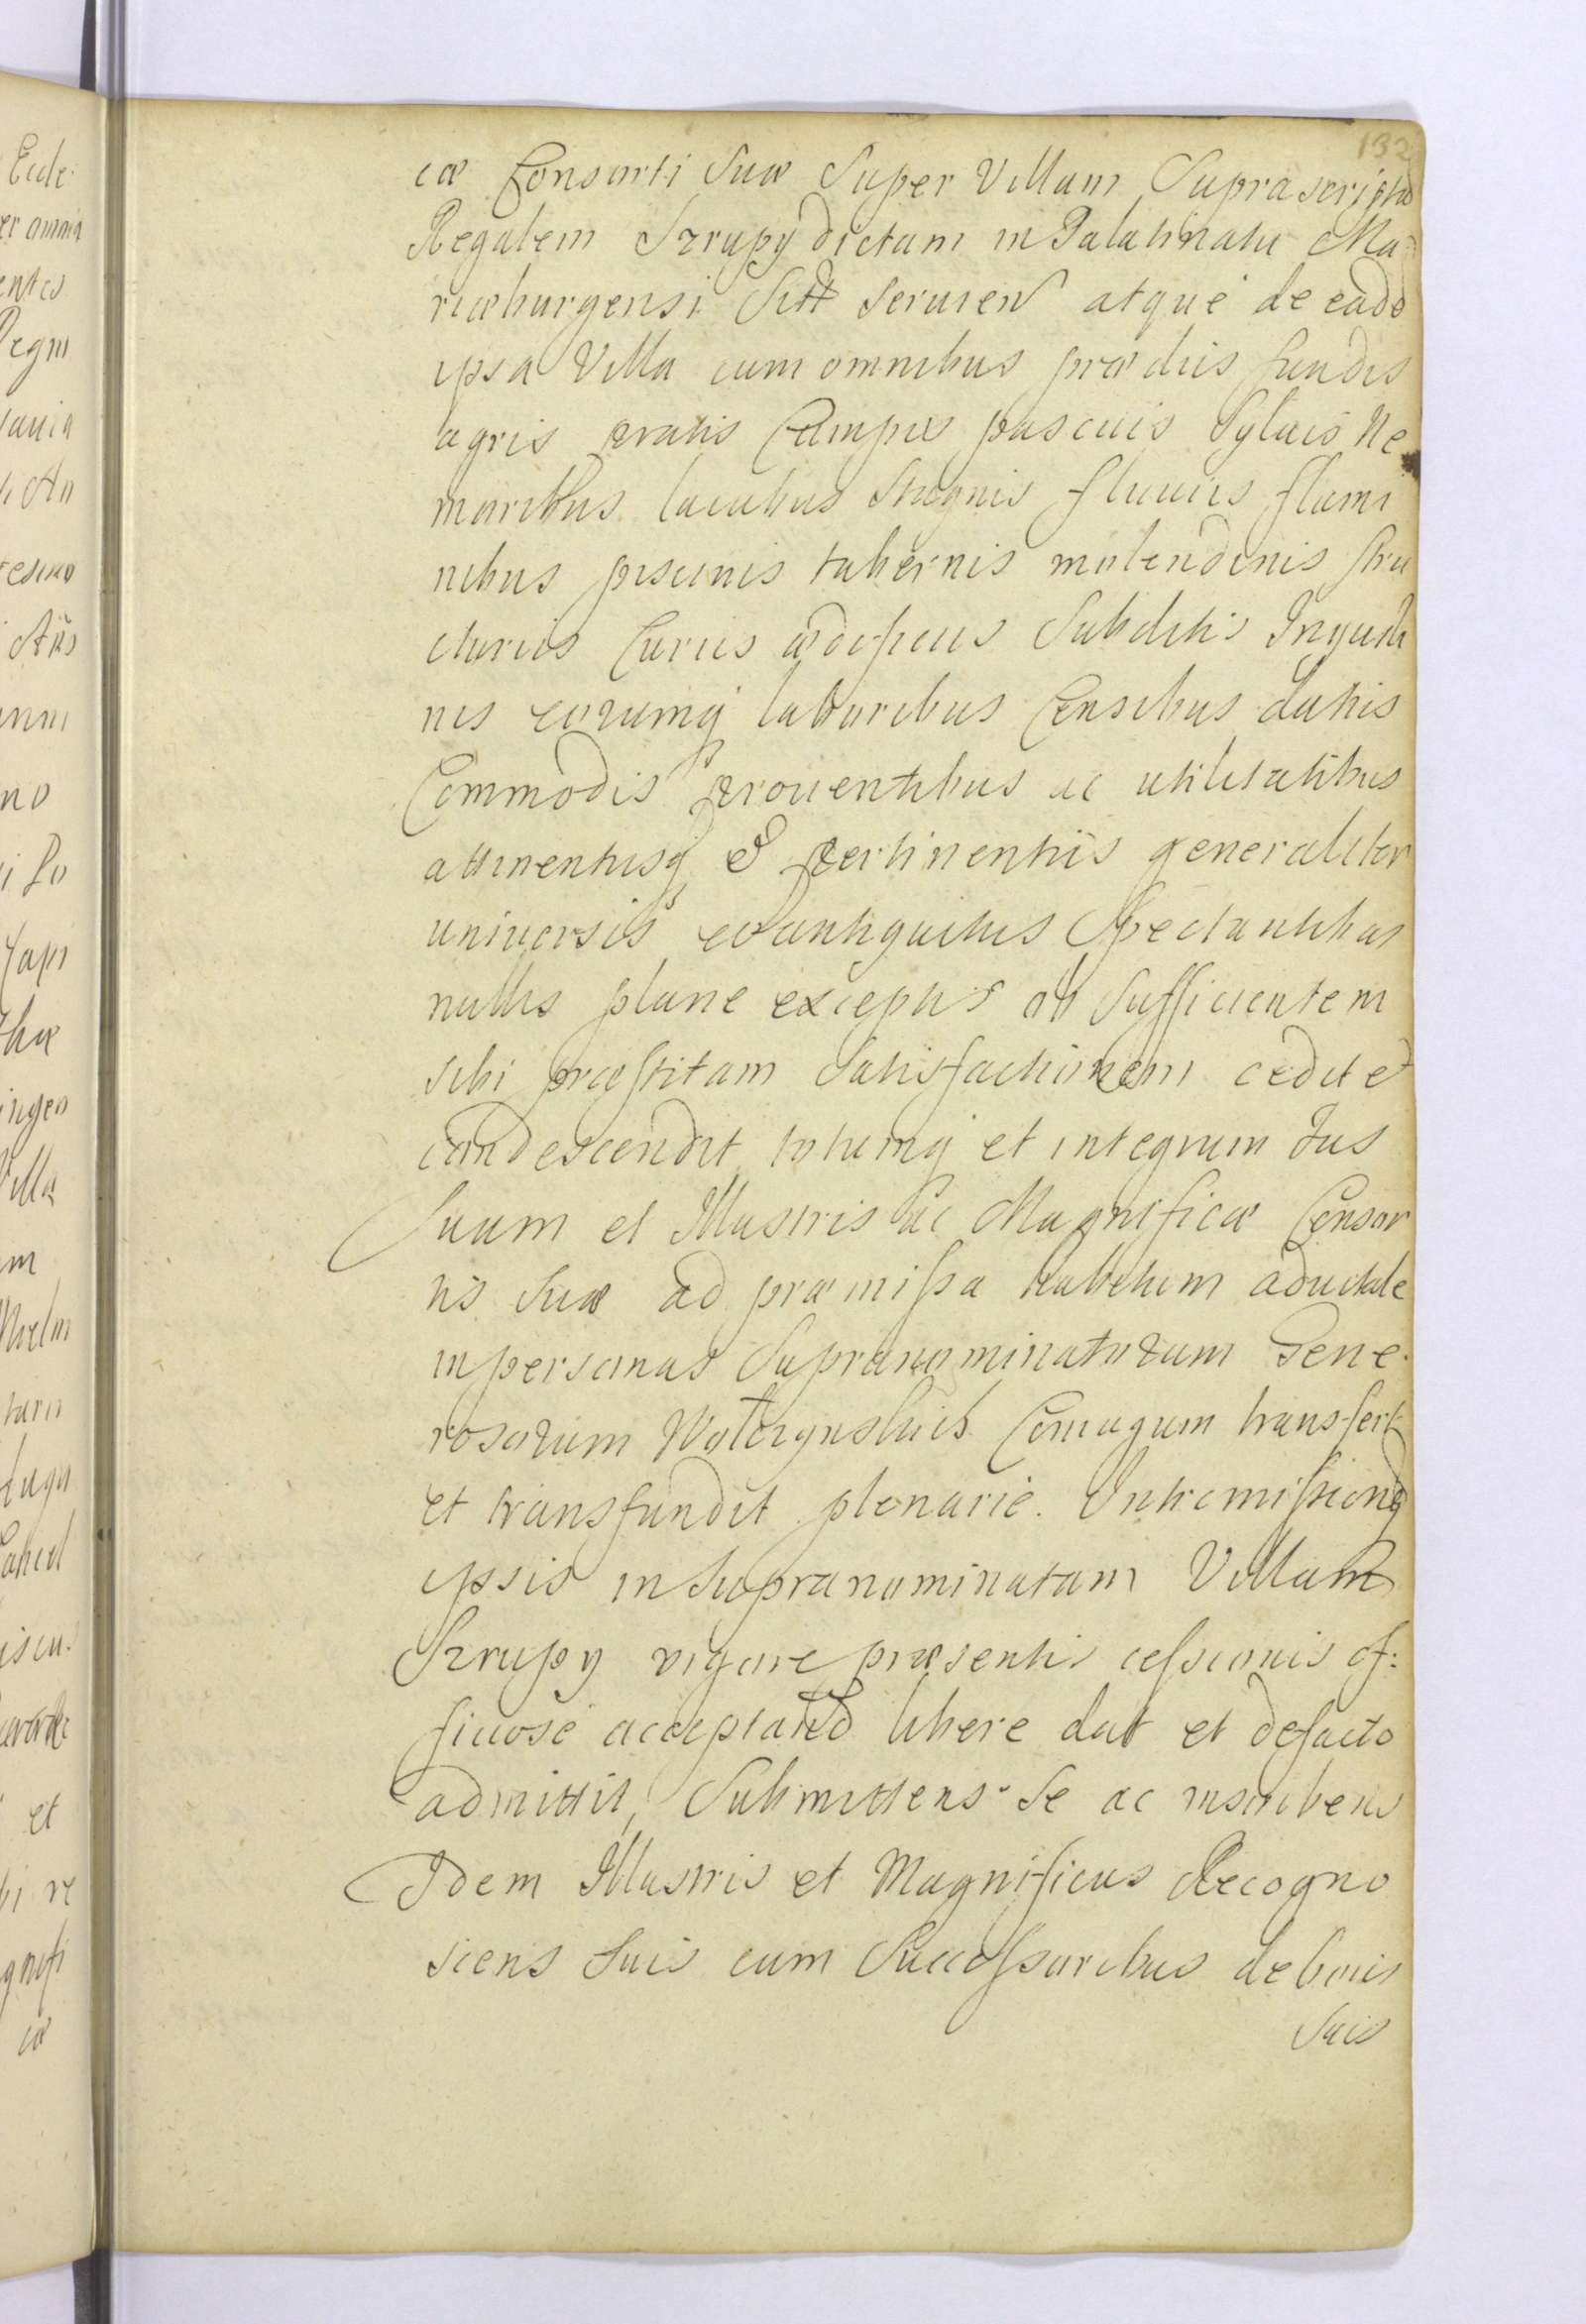 132
cæ Consorti Suæ Super Villam Suprascriptã
Regalem Szrupy dictam in Palatinatu Ma
riæburgensi Sitt seruien atque de eadẽ
ipsa Villa cum omnibus prædiis fundis
agris pratis Campis pascuis Syluis Ne
moribus lacubus Stagnis fluuiis flumi
nibus piscinis tabernis molendinis stru
cturis Curiis ædificiis Subditis Inquili
nis eorumq laboribus Censibus datiis
Commodis prouentibus ac utilitatibus
attinentiisq & pertinentiis generaliter
universis eo antiquitus Spectantibus
nullis plane exceptis ob Sufficientem
sibi præstitam Satisfactionem cedit et
condescendit totumq et integrum Jus
Suum et Illustris ac Magnificæ Consor
tis Suæ ad præmissa habitum aduitale
in personas Supranominatorum Gene
rosorum Coniugum transfert
et transfundit plenarie. Intromissionẽq
ipsis in Supranominatam Villam
Szrupy vigore præsentis cessionis of:
ficiose acceptand libere dat et defacto
admittit, Submittens Se ac inscribens
Idem Illustris et Magnificus Recogno
scens Suis cum Successoribus de bonis
Suis